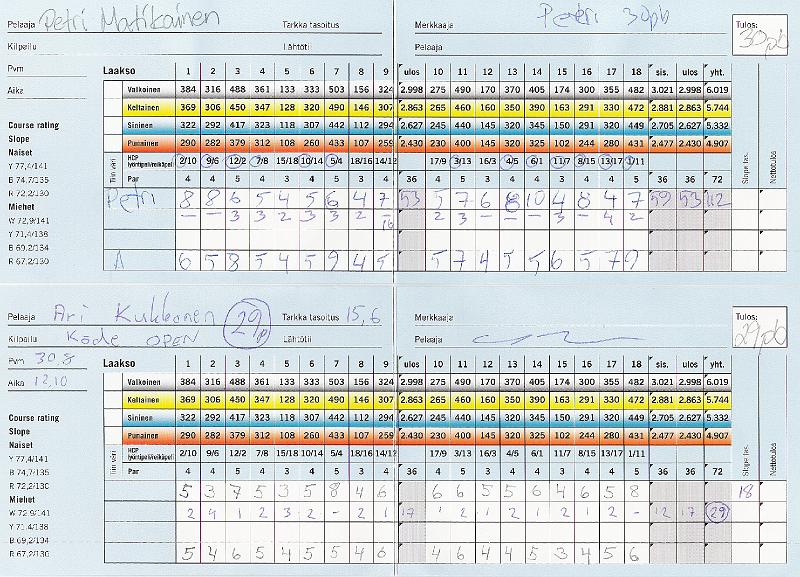 Pelaaja Petri Matikainen Tarkka tasoitus Merkkaaja Petri 30pb Tulos:
Kilpailu Lähtötii Pelaaja 30pb
Pvm Laakso 1 2 3 4 5 6 7 8 9 ulos 10 11 12 13 14 15 16 17 18 sis. ulos yht.
Aika Valkoinen 384 316 488 361 133 333 503 156 324 2.998 275 490 170 370 405 174 300 355 482 3.021 2.998 6.019
Keltainen 369 306 450 347 128 320 490 146 307 2.863 265 460 160 350 390 163 291 330 472 2.881 2.863 5.744
Course rating Sininen 322 292 417 323 118 307 442 112 294 2.627 240 440 145 320 345 150 291 320 449 2.705 2.627 5.332
Slope Punainen 290 282 379 312 108 260 433 107 259 2.430 230 400 145 320 325 102 244 280 431 2.477 2.430 4.907
Naiset
Y 77,4/141 Tiin väri HCP lyöntipeli/reikäpeli 2/10 9/6 12/2 7/8 15/18 10/14 5/4 18/16 14/12 17/9 3/13 16/3 4/5 6/1 11/7 8/15 13/17 1/11 Slope tas. Nettotulos
B 74,7/135 Par 4 4 5 4 3 4 5 3 4 36 4 5 3 4 4 3 4 4 5 36 36 72
R 72,2/130 Petri 8 8 6 5 4 5 6 4 7 53 5 7 6 8 10 4 8 4 7 59 53 112
Miehet
W 72,9/141 – – 3 3 2 3 3 2 – 2 3 – – – 3 – 4 2
Y 71,4/138 16
B 69,2/134
R 67,2/130 A 6 5 8 5 4 5 9 4 5 5 7 4 5 5 6 5 7 9
Pelaaja Ari Kukkonen 29p Tarkka tasoitus 15,6 Merkkaaja Tulos:
Kilpailu Köde OPEN Lähtötii Pelaaja 29pb
Pvm 30.8 Laakso 1 2 3 4 5 6 7 8 9 ulos 10 11 12 13 14 15 16 17 18 sis. ulos yht.
Aika 12.10 Valkoinen 384 316 488 361 133 333 503 156 324 2.998 275 490 170 370 405 174 300 355 482 3.021 2.998 6.019
Keltainen 369 306 450 347 128 320 490 146 307 2.863 265 460 160 350 390 163 291 330 472 2.881 2.863 5.744
Course rating Sininen 322 292 417 323 118 307 442 112 294 2.627 240 440 145 320 345 150 291 320 449 2.705 2.627 5.332
Slope Punainen 290 282 379 312 108 260 433 107 259 2.430 230 400 145 320 325 102 244 280 431 2.477 2.430 4.907
Naiset
Y 77,4/141 Tiin väri HCP lyöntipeli/reikäpeli 2/10 9/6 12/2 7/8 15/18 10/14 5/4 18/16 14/12 17/9 3/13 16/3 4/5 6/1 11/7 8/15 13/17 1/11 Slope tas. Nettotulos
B 74,7/135 Par 4 4 5 4 3 4 5 3 4 36 4 5 3 4 4 3 4 4 5 36 36 72
R 72,2/130 5 3 7 5 3 5 8 4 6 6 6 5 5 6 4 6 5 8 18
Miehet
W 72,9/141 2 4 1 2 3 2 – 2 1 17 1 2 1 2 1 2 1 2 – 12 17 29
Y 71,4/138
B 69,2/134
R 67,2/130 5 4 6 5 4 5 5 4 5 4 6 4 4 5 3 4 5 6